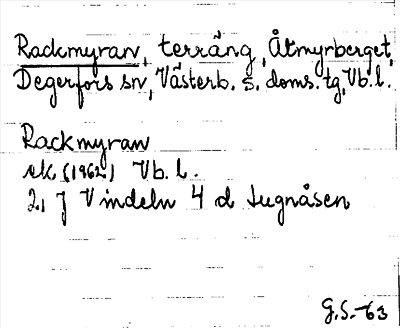 Rackmyran, terräng, Åtmyrberget,
Degerfors sn, Västerb. s. doms. tg, Vb. l.
Rackmyran
ek (1962) Vb. l.
21 J Vindeln 4 d Lugnåsen
G.S.-63